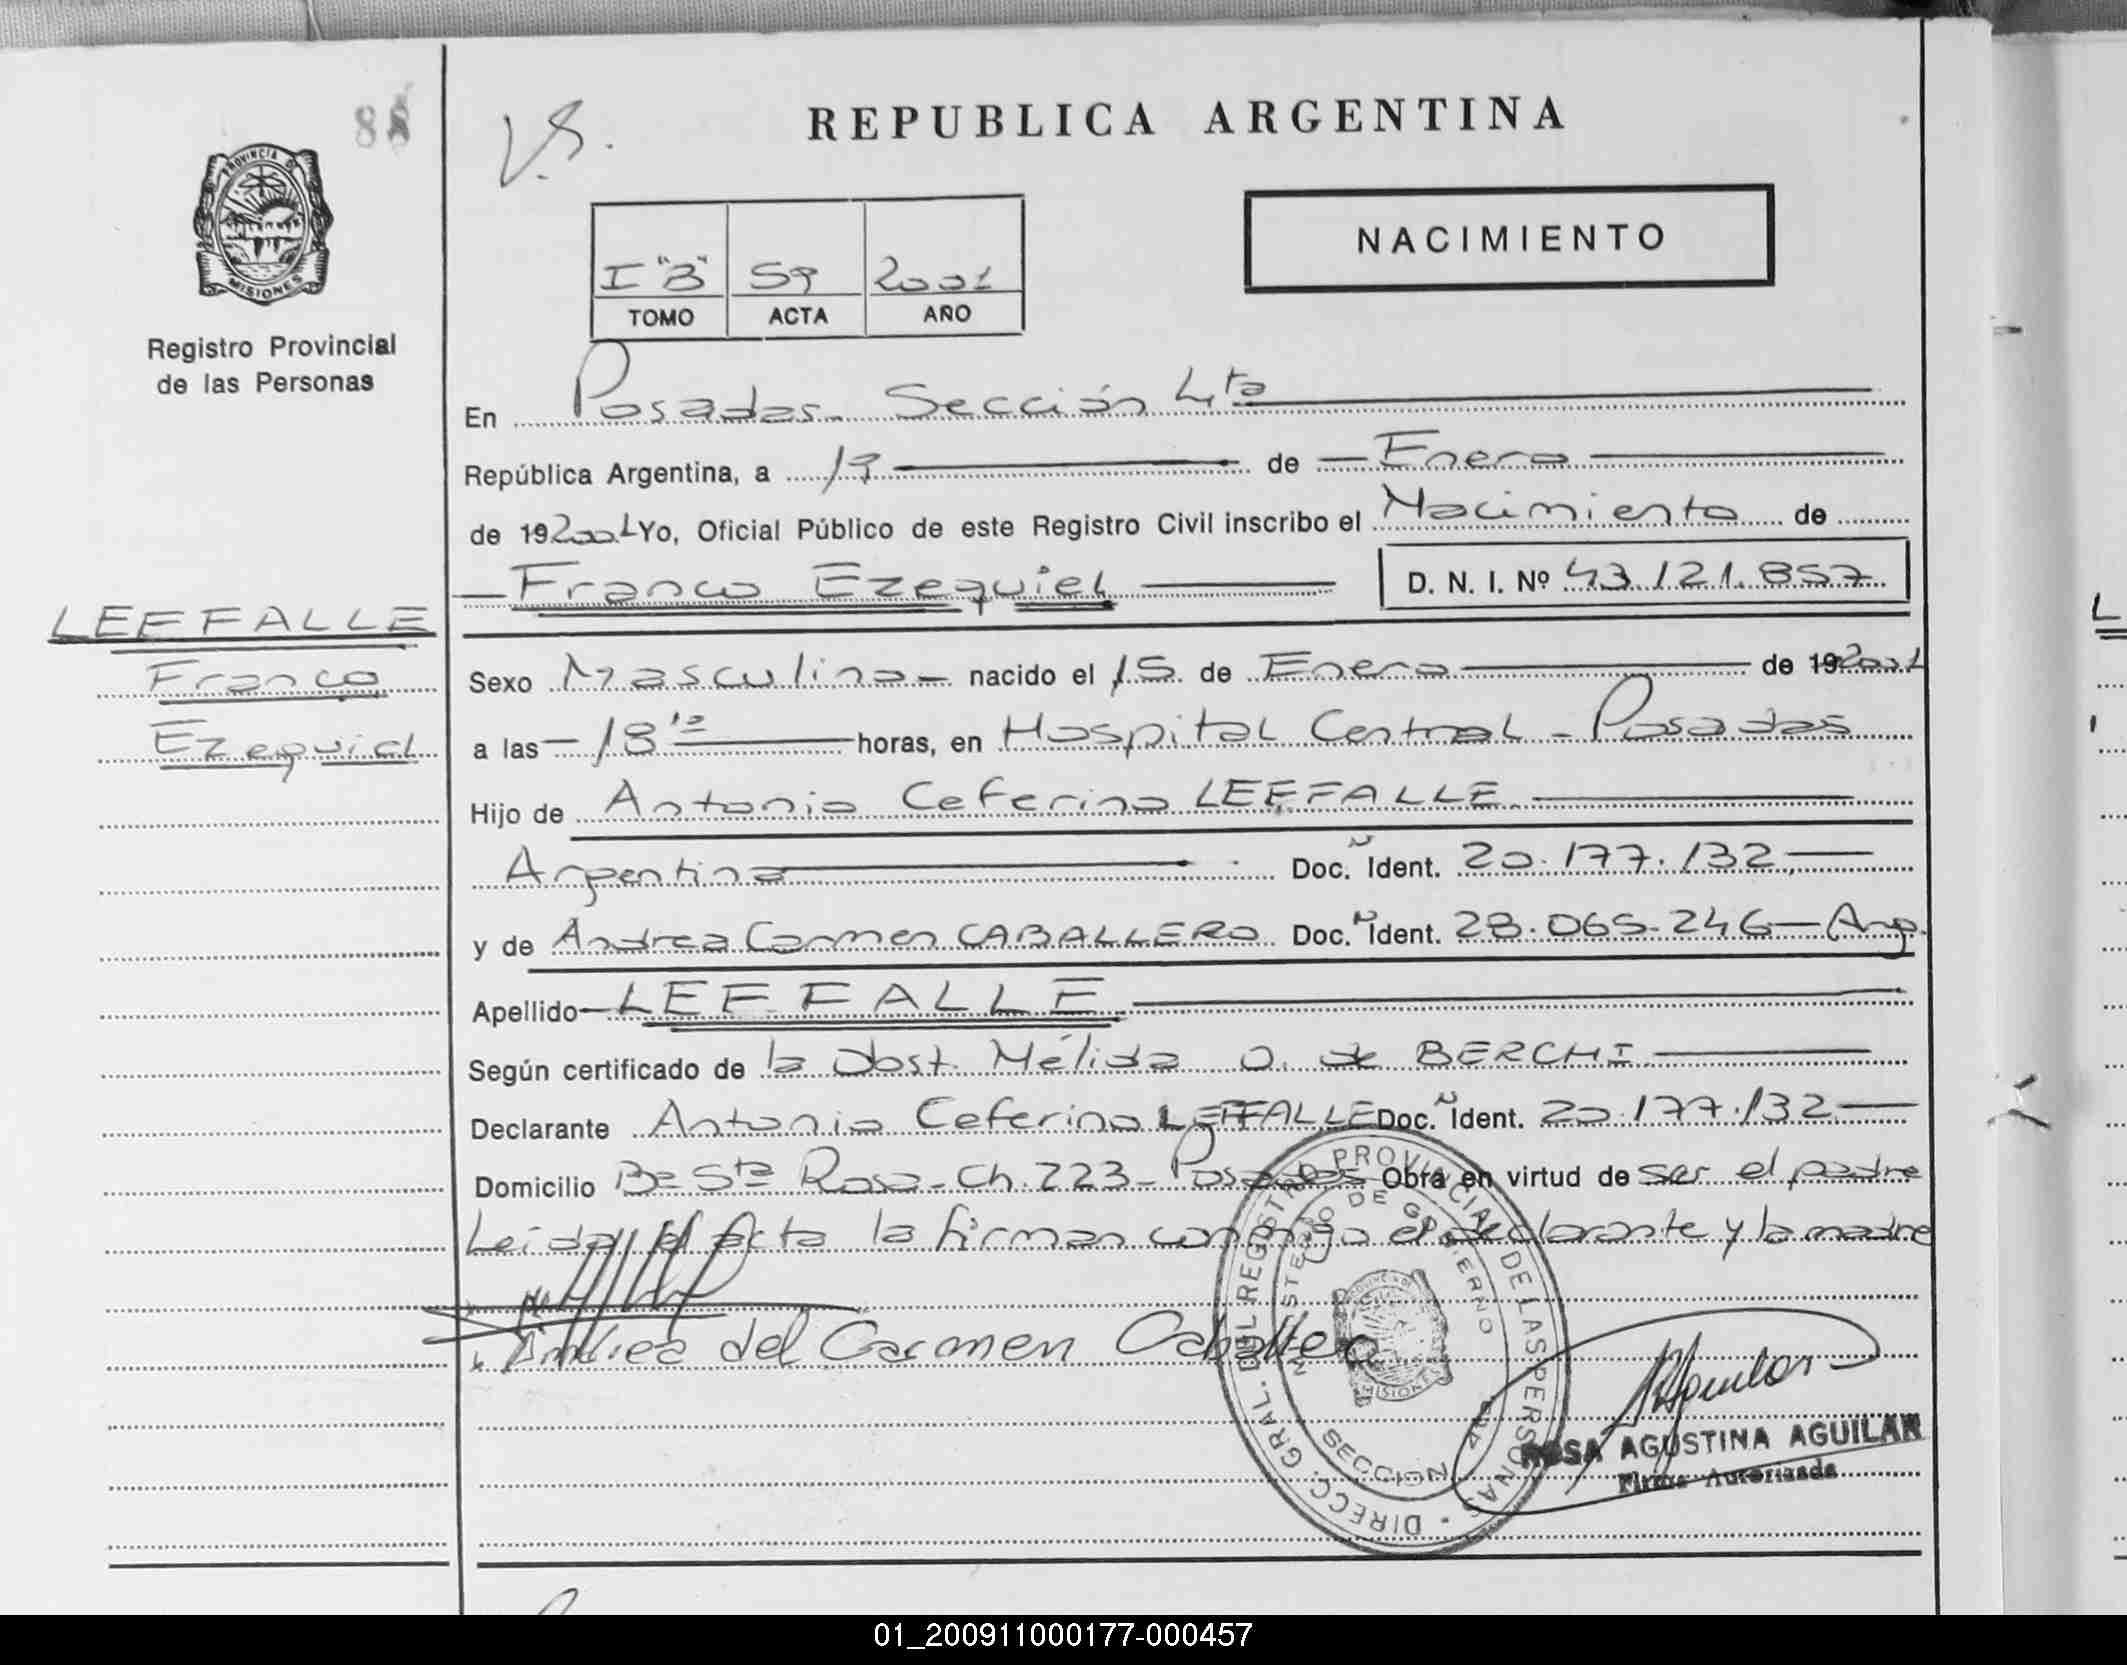 88
V.S.
REPUBLICA ARGENTINA
PROVINCIA DE
MISIONES
Registro Provincial
de las Personas
NACIMIENTO
I "B" 59 2001
TOMO ACTA AÑO
En Posadas - Sección 4ta
República Argentina, a 17 de Enero
de 192001 Yo, Oficial Público de este Registro Civil inscribo el Nacimiento de
Franco Ezequiel D. N. I. Nº 43.121.857
LEFFALLE
Franco
Ezequiel
Sexo Masculino - nacido el 15 de Enero de 192001
a las 18 horas, en Hospital Central - Posadas
Hijo de Antonio Ceferino LEFFALLE
Argentino Doc. Ident. 20.177.132
y de Andrea Carmen CABALLERO Doc. Ident. 28.065.246 - Arg.
Apellido LEFFALLE
Según certificado de la Obst. Nélida O. de BERCHI
Declarante Antonio Ceferino LEFFALLE Doc. Ident. 20.177.132
Domicilio Bº Sta Rosa - Ch. 223 - Posadas Obra en virtud de ser el padre
Leída el Acta la firman conmigo el declarante y la madre
Andrea del Carmen Caballero
DIRECC. GRAL. DEL REGISTRO PROVINCIAL DE LAS PERSONAS
MINISTERIO DE GOBIERNO
SECCION 4ta.
MISIONES
RAguilar
ROSA AGUSTINA AGUILAR
Firma Autorizada
01_200911000177-000457